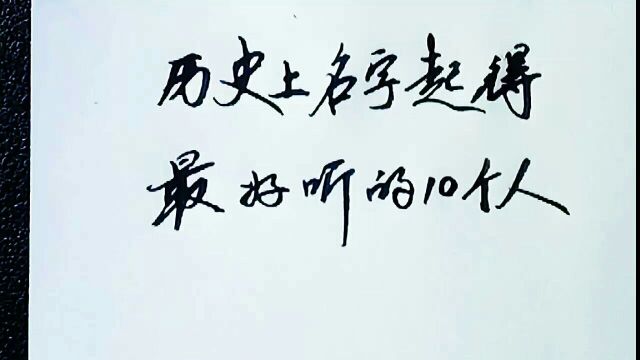 历史上名字起得
最好听的10个人